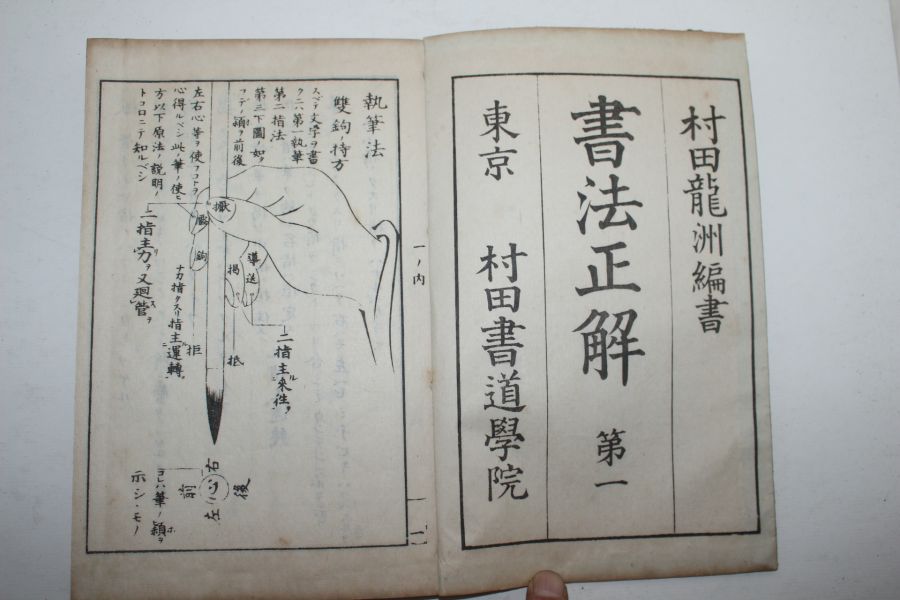 村田龍洲編書
書法正解 第一
東京 村田書道學院
執筆法
雙鉤ノ持方
スベテ文字ヲ書
クニハ第一執筆
第二指法
第三下圖ノ如ク
フデノ穎ヲ前後
左右心等ヲ使フコトヲ
心得ルベシ此ノ筆ノ使ヒ
方以下原法ノ説明ノ
トコロニテ知ルベシ
擫
壓
鉤
揭
導
送
拒
抵
二指主力ヲ又廻管ヲ
ナカ指クスリ指主運轉
二指主來徃
右
心
左
前
後
コレハ筆ノ穎ヲ
示シヽモノ
一ノ内
一